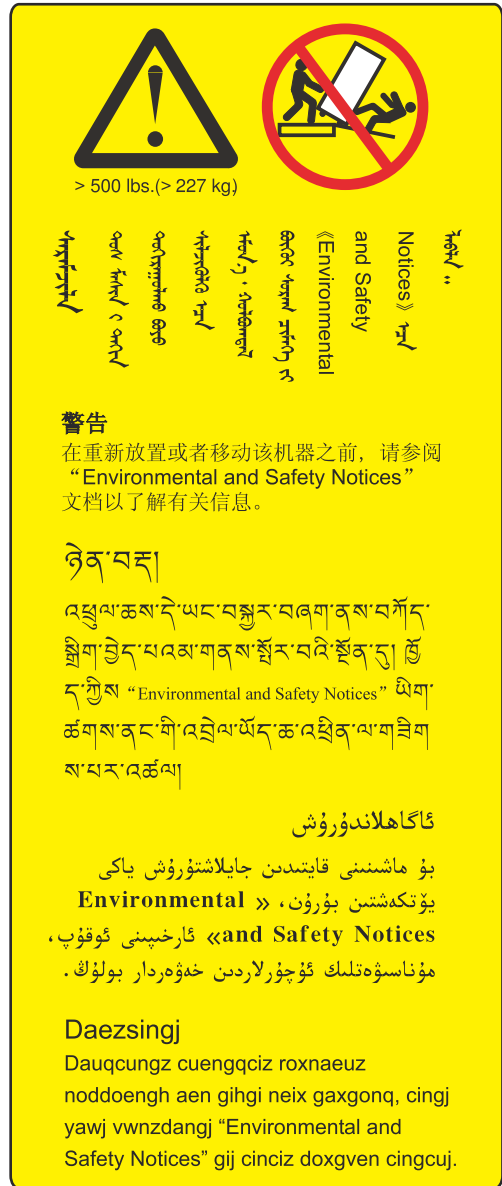 > 500 lbs.(> 227 kg)
ᠰᠡᠷᠡᠮᠵᠢᠯᠡᠯ
ᠲᠤᠰ ᠮᠠᠰᠢᠨ ᠢ ᠳᠠᠬᠢᠨ
ᠲᠣᠬᠢᠷᠠᠭᠤᠯᠬᠤ ᠪᠤᠶᠤ
ᠰᠢᠯᠵᠢᠭᠦᠯᠬᠦ ᠡᠴᠡ
ᠡᠮᠦᠨ᠎ᠡ ᠂ ᠬᠣᠯᠪᠣᠭᠳᠠᠯ
ᠪᠦᠬᠦᠢ ᠰᠤᠷᠠᠭ ᠴᠢᠮᠡᠭᠡ ᠶᠢ
《Environmental
and Safety
Notices》 ᠡᠴᠡ
警告
在重新放置或者移动该机器之前，请参阅
“Environmental and Safety Notices”
文档以了解有关信息。
ཉེན་བརྡ།
འཕྲུལ་ཆས་དེ་ཡང་བསྐྱར་བཞག་ནས་བཀོད་
སྒྲིག་བྱེད་པའམ་གནས་སྤོར་བའི་སྔོན་དུ། ཁྱོ
ད་ཀྱིས “Environmental and Safety Notices” ཡིག་
ཚགས་ནང་གི་འབྲེལ་ཡོད་ཆ་འཕྲིན་ལ་གཟིག
ས་པར་འཚལ།
ئاگاھلاندۇرۇش
بۇ ماشىنىنى قايتىدىن جايلاشتۇرۇش ياكى
يۆتكەشتىن بۇرۇن، « Environmental
and Safety Notices» ئارخىپىنى ئوقۇپ،
مۇناسىۋەتلىك ئۇچۇرلاردىن خەۋەردار بولۇڭ.
Daezsingj
Dauqcungz cuengqciz roxnaeuz
noddoengh aen gihgi neix gaxgonq, cingj
yawj vwnzdangj “Environmental and
Safety Notices” gij cinciz doxgven cingcuj.